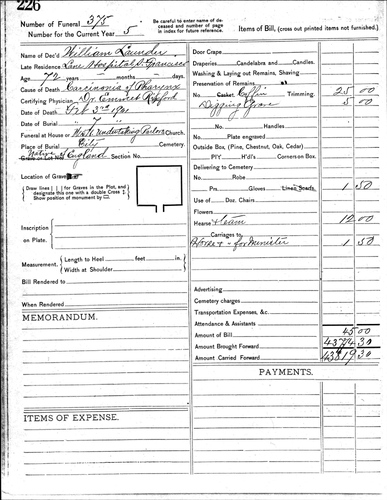 226
Number of Funeral 375
Number for the Current Year 5
Be careful to enter name of deceased and number of page in index for future reference.
Items of Bill, (cross out printed items not furnished.)
Name of Dec'd William Launder
Late Residence Lane Hospital San Francisco
Age 72 years — months — days.
Cause of Death Carcinoma of Pharynx
Certifying Physician Dr. Emmet Rixford
Date of Death Feb 3rd 1901
Date of Burial " 7 "
Funeral at House or Undertaking Parlors Church.
Place of Burial City
Native of England Section No.
Grave or Lot No.
Location of Grave
Draw lines | | | for Graves in the Plot, and designate this one with a double Cross
Show position of monument by
Inscription on Plate.
Measurement, Length to Heel feet in.
Width at Shoulder in.
Bill Rendered to
When Rendered
MEMORANDUM.
ITEMS OF EXPENSE.
Door Crape
Draperies Candelabra and Candles.
Washing & Laying out Remains, Shaving
Preservation of Remains
No. Casket Coffin Trimming. 25 00
Digging Grave 5 00
No. Handles
Plate engraved
Outside Box, (Pine, Chestnut, Oak, Cedar)
PIY H'd's Corners on Box.
Delivering to Cemetery
No. Robe
Prs. Gloves Linen Scarfs 1 50
Use of Doz. Chairs
Flowers
Hearse & team 12 00
Carriages to
for Minister 1 50
Advertising
Cemetery charges
Transportation Expenses, &c.
Attendance & Assistants
Amount of Bill 45 00
Amount Brought Forward 43774 30
Amount Carried Forward 43819 30
PAYMENTS.